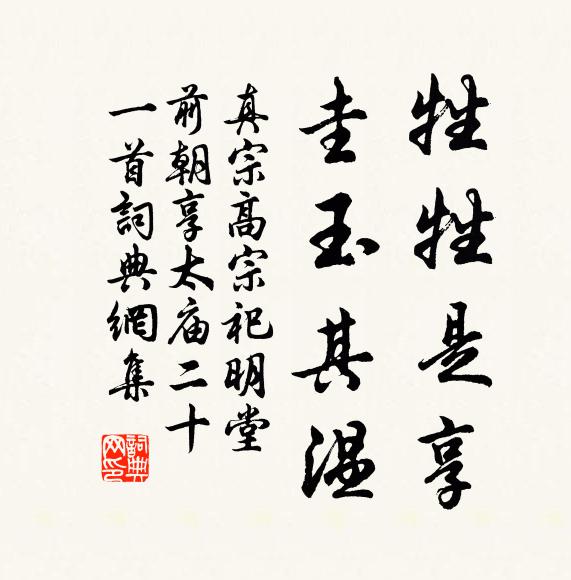 牲牲是享
圭玉其温
真宗高宗祀明堂
前朝享太庙二十
一首詞典網集
詞典
网印